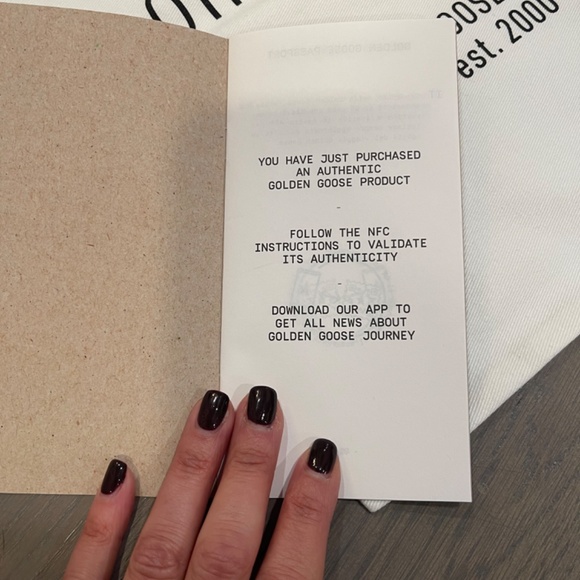 est. 2000
YOU HAVE JUST PURCHASED
AN AUTHENTIC
GOLDEN GOOSE PRODUCT
-
FOLLOW THE NFC
INSTRUCTIONS TO VALIDATE
ITS AUTHENTICITY
-
DOWNLOAD OUR APP TO
GET ALL NEWS ABOUT
GOLDEN GOOSE JOURNEY